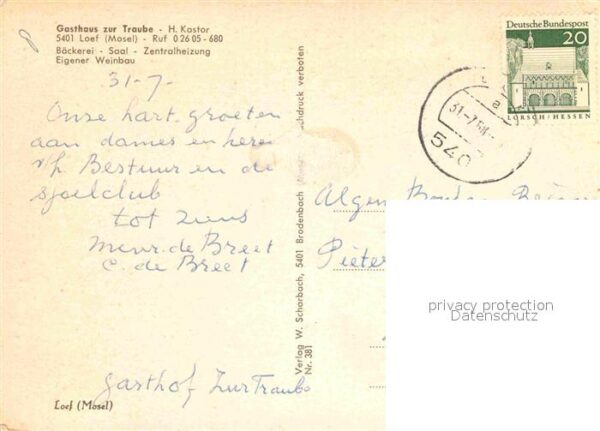 Gasthaus zur Traube - H. Kastor
5401 Loef (Mosel) - Ruf 0 26 05 - 680
Bäckerei - Saal - Zentralheizung
Eigener Weinbau
31-7-
Onze hart. groeten
aan dames en heren
v/h Bestuur en de
sjoelclub
tot ziens
Mevr. de Breet
C. de Breet
Gasthof Zur Traube
Loef (Mosel)
Verlag W. Scharbach, 5401 Brodenbach
Nr. 381
chdruck verboten
Deutsche Bundespost
20
LORSCH/HESSEN
31.-7.
540
a
Algem
Pieter
privacy protection
Datenschutz